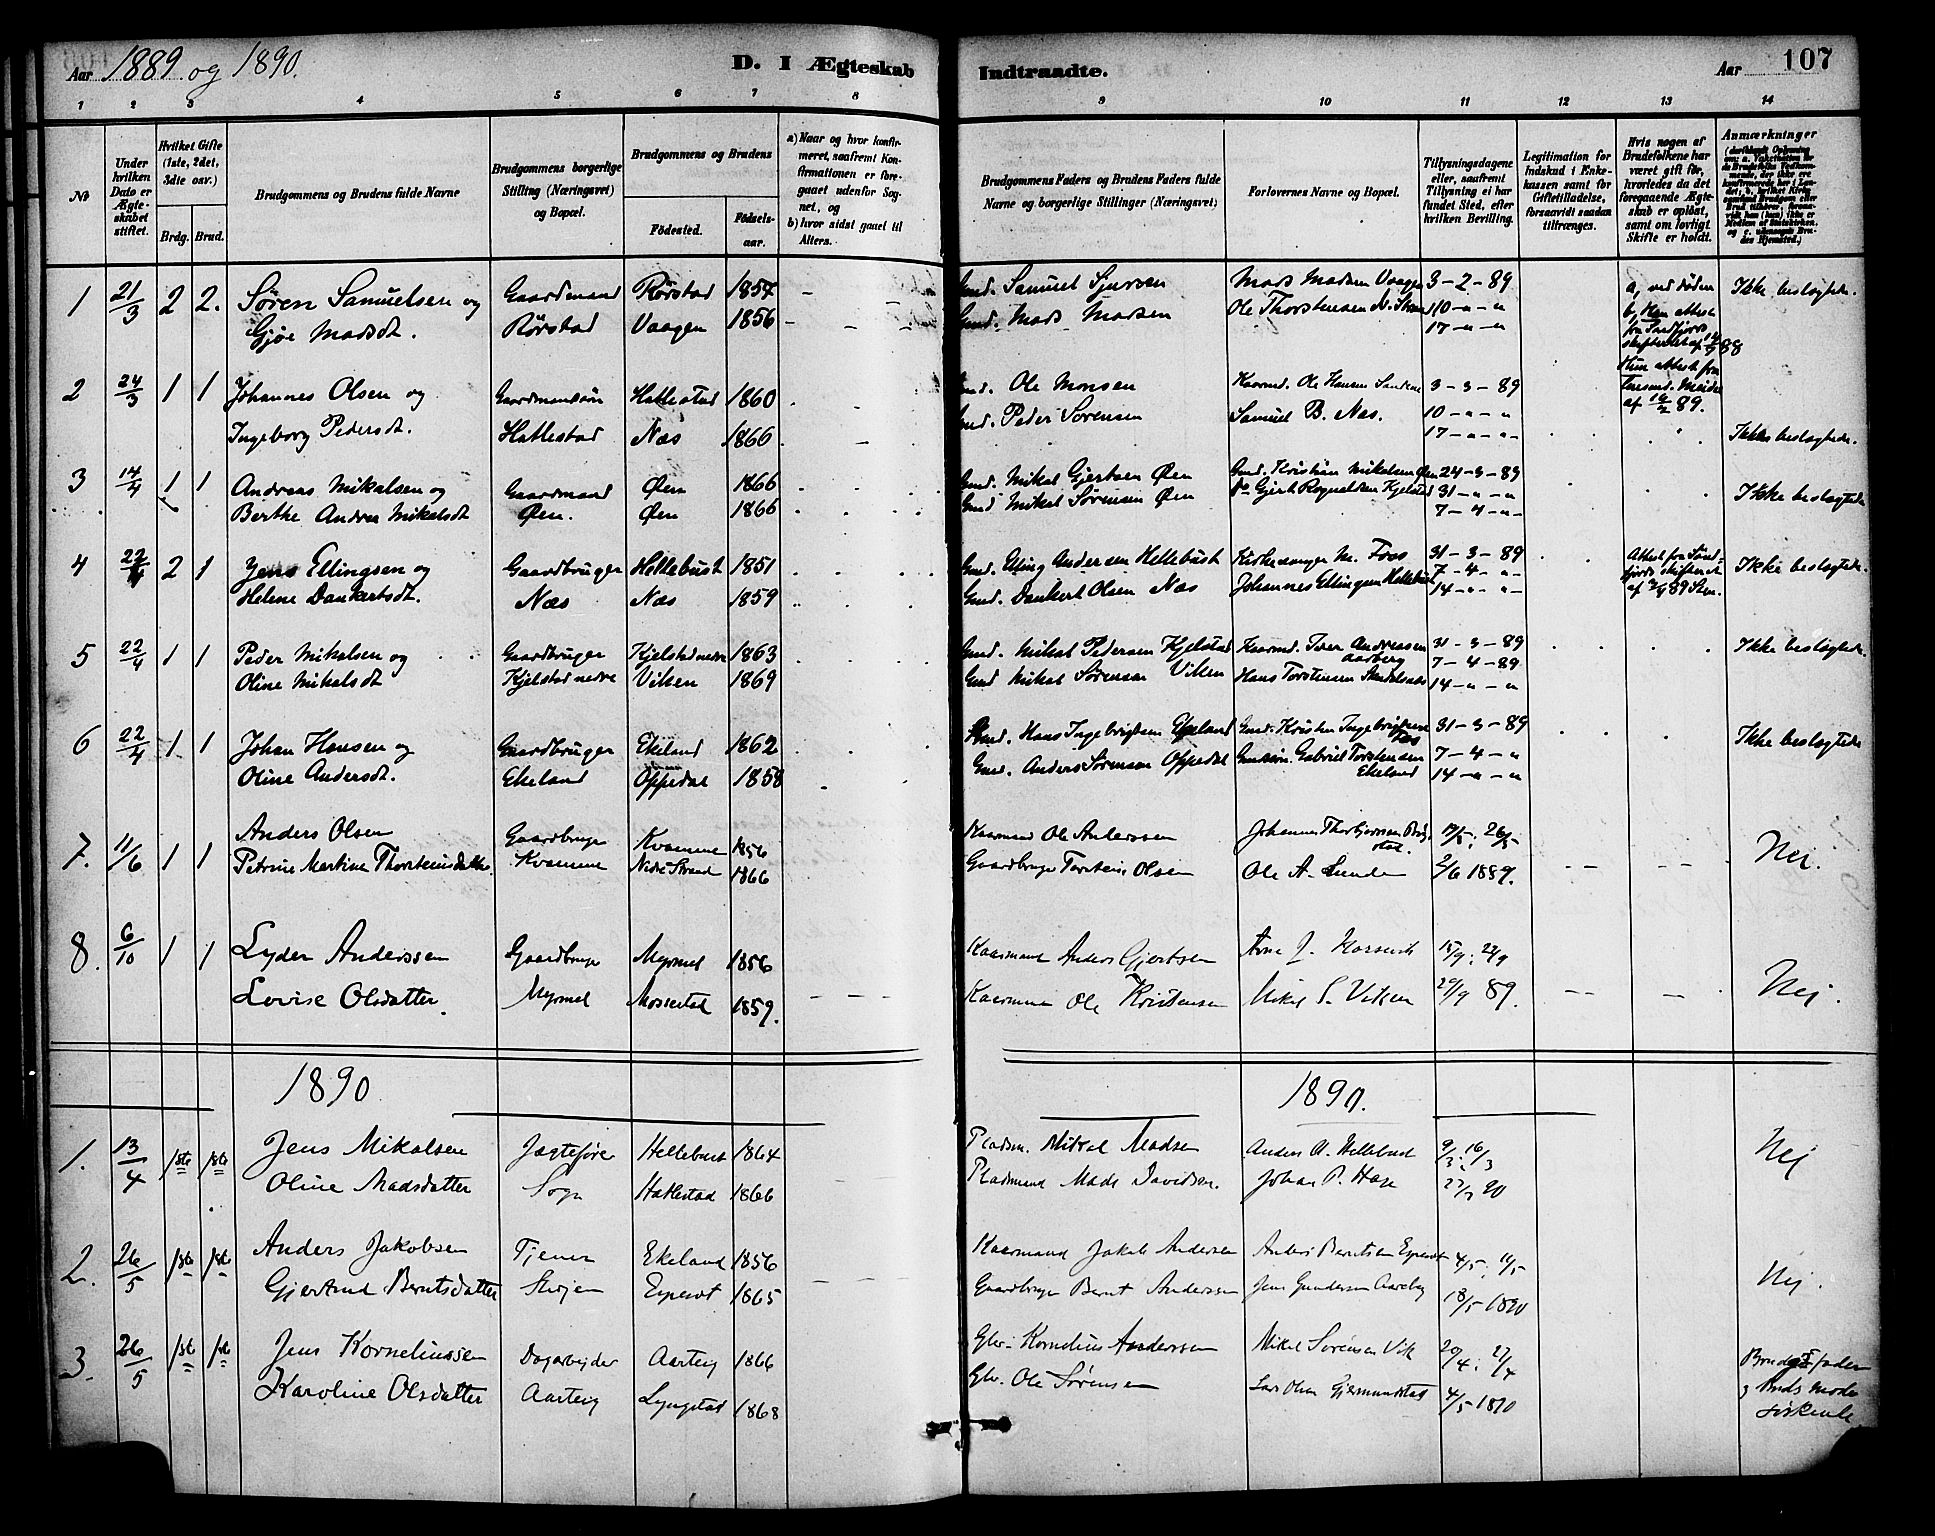 Aar 1889 og 1890.
D. I Ægteskab Indtraadte.
Aar 107
1 2 3 4 5 6 7 8 9 10 11 12 13 14
№
Under hvilken Dato er Ægteskabet stiftet.
Hvilket Gifte (1ste, 2det, 3die osv.)
Brdg. Brud.
Brudgommens og Brudens fulde Navne
Brudgommens borgerlige Stilling (Næringsvei) og Bopæl.
Brudgommens og Brudens
Födested. Födselsaar.
a) Naar og hvor konfirmeret, saafremt Konfirmationen er foregaaet udenfor Sognet, og
b) hvor sidst gaaet til Alters.
Brudgommens Faders og Brudens Faders fulde Navne og borgerlige Stillinger (Næringsvei)
Forlovernes Navne og Bopæl.
Tillysningsdagene eller, saafremt Tillysning ei har fundet Sted, efter hvilken Bevilling.
Legitimation for Indskud i Enkekassen samt for Giftetilladelse, forsaavidt saadan tiltrænges.
Hvis nogen af Brudefolkene har været gift før, hvorledes da det foregaaende Ægteskab er opløst, samt om lovligt Skifte er holdt.
Anmærkninger
1 21/3 2 2. Søren Samuelsen og Gaardmand Rörstad 1854 Gmd. Samuel Sjursen Mads Madsen Vaage 3-2-89 a, ved døden Ikke beslægtede.
Gjøe Madsdt. Rörstad Vaagen 1856 Gmd. Mads Madsen Ole Thorstensen N. Strand 10-"-" 17-"-"
2 24/3 1 1 Johannes Olsen og Gaardmandsön Hattestad 1860 Gmd. Ole Monsen Kaarmd. Ole Hansen 3-3-89
Ingeborg Pedersdt. Hattestad Næs 1866 Gmd. Peder Sörensen Samuel B. Næs. 10-"-" 17-"-" Ikke beslægtede.
3 14/4 1 1 Andreas Mikalsen og Gaardmand Øen 1866 Gmd. Mikal Gjertsen Øen Gmd. Kristian Mikalsen Øen 24-3-89
Berthe Andrea Mikalsdt Øen. Øen 1866 Gmd Mikal Sörensen Øen Gjert Rognaldsen Kjelstad 31-"-" 7-4-"- Ikke beslægtede
4 22/4 2 1 Jens Ellingsen og Gaardbruger Hellebust 1851 Gmd. Elling Andersen Hellebust Kirkesanger M. Foss 31-3-89 Attest fra Söndfjords skifteret Ikke beslægtede.
Helene Dankertsdt. Næs Næs 1859 Gmd. Dankert Olsen Næs Johannes Ellingsen Hellebust 7-4-"- 14-"-"-
5 22/4 1 1 Peder Mikalsen og Gaardbruger Kjelstad nedre 1863 Gmd. Mikal Pedersen Kjelstad Kaarmd. Iver Andreassen Aarberg 31-3-89 Ikke beslægtede
Oline Mikalsdt Kjelstad nedre Viken 1869 Gmd Mikal Sörensen Viken Hans Torstensen 7-4-89 14-"-"
6 22/4 1 1 Johan Hansen og Gaardbruger Ekeland 1862 Gmd. Hans Ingebrigtsen Ekeland Gmd. Kristen Ingebrigtsen Foss 31-3-89 Ikke beslægtede
Oline Andersdt. Ekeland Oppedal 1858 Gmd. Anders Sörensen Oppedal Gmdsön. Gabriel Torstensen Ekeland 7-4-" 14-"-"
7. 11/6 1 1 Anders Olsen Gaardbruger Kvamme 1856 Kaarmand Ole Anderssen 19/5. 26/5 Nej.
Petrine Martine Thorsteinsdatter. Kvamme Nedre Strand 1866 Gaardbruger Torstein Olsen Ole A. Lunde 2/6 1889.
8. 6/10 1 1 Lyder Anderssen Gaardbruger Myrmel 1856 Kaarmand Anders Gjertsen Arne J. 15/9. 22/9 Nej.
Lovise Olsdatter. Myrmel Mossestad 1859. Kaarmand Ole Kristensen Mikal S. Viken 29/9 89.
1890 1890.
1. 13/4 1ste 1ste Jens Mikalsen Jægtefører Hellebust 1864 Pladsm. Mikal Madsen Anders A. Hellebust 9/3. 16/3 Nej
Oline Madsdatter Sogn Hattestad 1866 Pladsmand Mads Davidsen. Johan P. 23/3 90
2. 26/5 1ste 1ste Anders Jakobsen Tjener Ekeland 1856 Kaarmand Jakob Andersen Anders Berntsen Espeset 4/5. 11/5
Gjertrud Berntsdatter Espeset 1865 Gaardbruger Bernt Anderssen Jens Gundersen Aareberg 18/5 1890 Nej.
3. 26/5 1ste 1ste Jens Korneliussen Dagarbejder Aarteig 1866 Gbr. Kornelius Anderssen Mikal Sörensen Vik 20/4. 27/4 Brudg. Fader
Karoline Olsdatter Aarteig Lyngstad 1868 Gbr. Ole Sörensen Lars Olsen Gjermundstad 4/5 1890 og Bruds Moder Söskende